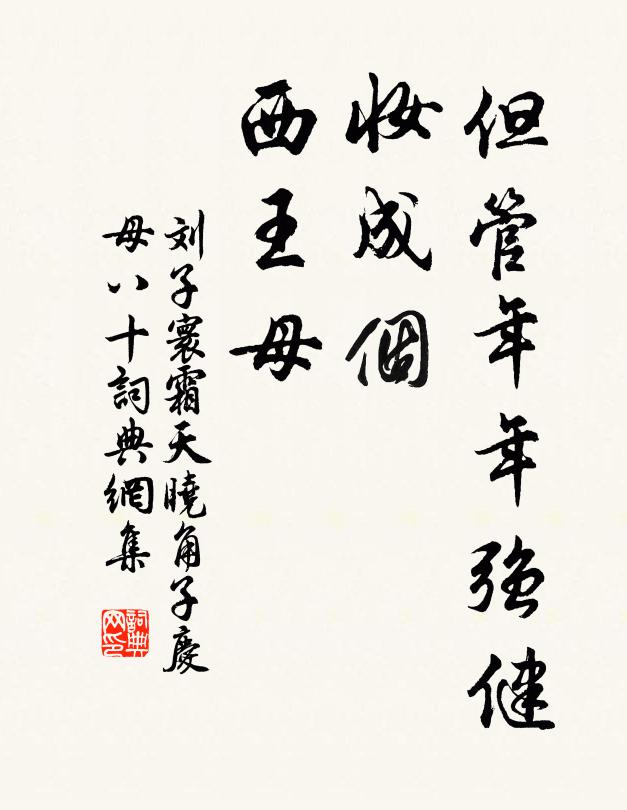 但管年年强健
妝成個
西王母
刘子寰霜天曉角子慶
母八十詞典網集
詞典网印